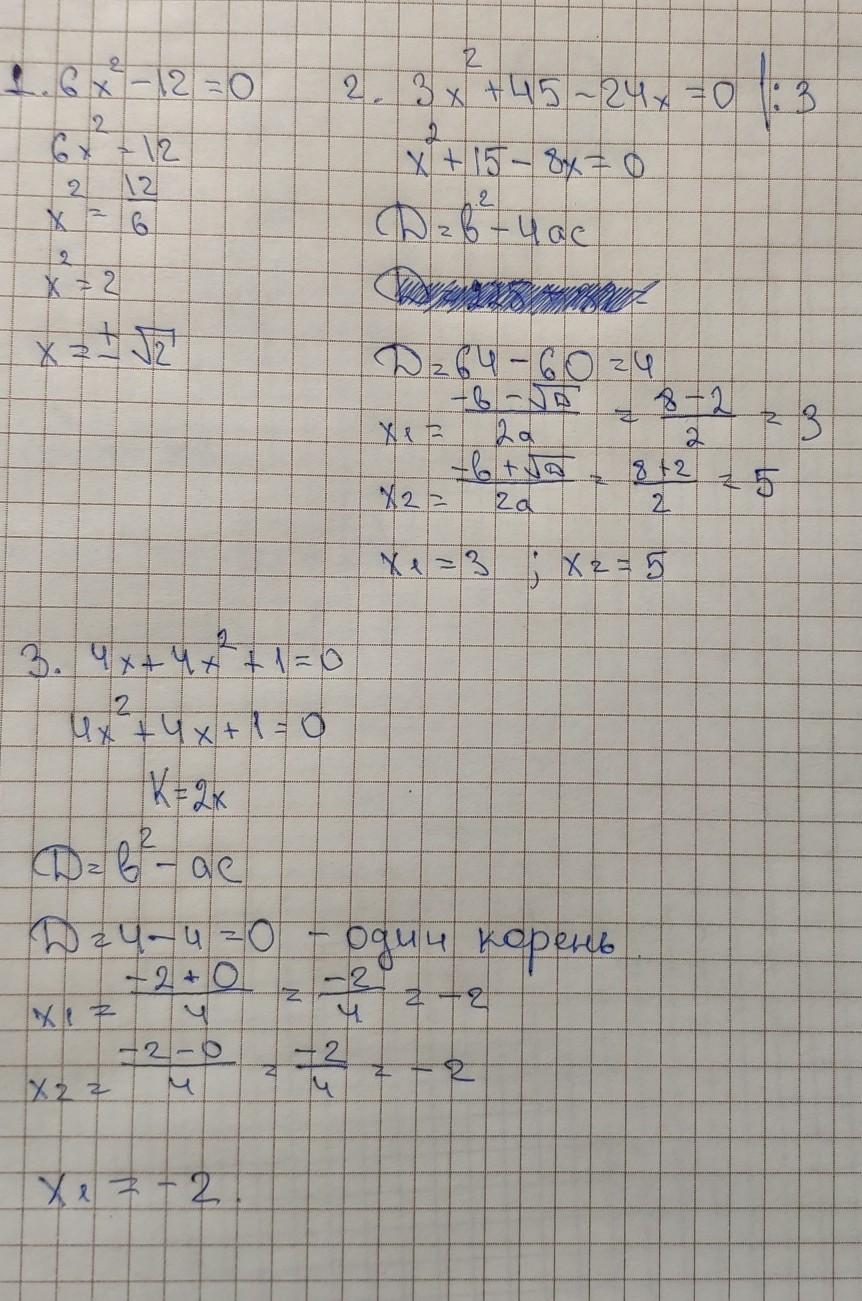 1. 6x² - 12 = 0
6x² = 12
x² = 12/6
x² = 2
x = ± √2
2. 3x² + 45 - 24x = 0 |: 3
x² + 15 - 8x = 0
D = b² - 4ac
D = 64 - 60 = 4
x1 = (-b - √D)/2a = (8 - 2)/2 = 3
x2 = (-b + √D)/2a = (8 + 2)/2 = 5
x1 = 3 ; x2 = 5
3. 4x + 4x² + 1 = 0
4x² + 4x + 1 = 0
K = 2x
D = b² - ac
D = 4 - 4 = 0 - один корень
x1 = (-2 + 0)/4 = -2/4 = -2
x2 = (-2 - 0)/4 = -2/4 = -2
x1 = -2.